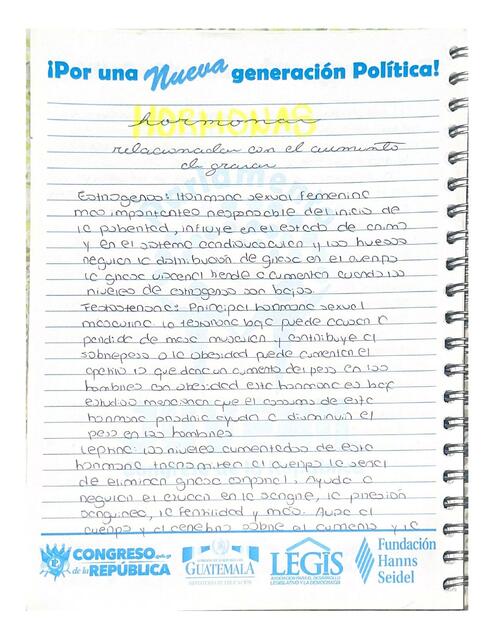 ¡Por una Nueva generación Política!
HORMONAS
hormonas
relacionadas con el aumento
de grasas
Estrogenos: Hormona sexual femenina
mas importantes responsable del inicio de
la pubertad, influye en el estado de animo
y en el sistema cardiovascular y los huesos
regula la distribución de grasa en el cuerpo
la grasa visceral tiende a aumentar cuando los
niveles de estrogeno son bajos.
Testosterona: Principal hormona sexual
masculina la testosterona baja puede causar la
perdida de masa muscular y contribuye al
sobrepeso o la obesidad puede aumentar el
apetito lo que da un aumento del peso en los
hombres con obesidad esta hormona es baja
estudios mencionan que el consumo de esta
hormona podria ayuda a disminuir el
peso en los hombres
Leptina: los niveles aumentados de esta
hormona transmiten al cuerpo la señal
de eliminar grasa corporal. Ayuda a
regular el azucar en la sangre, la presión
sanguinea, la fertilidad y mas. Avisa al
cuerpo y al cerebro sobre el aumento y la
CONGRESO gob.gt
de la REPÚBLICA
GUATEMALA
MINISTERIO DE EDUCACIÓN
LEGIS
ASOCIACIÓN PARA EL DESARROLLO
LEGISLATIVO Y LA DEMOCRACIA
Fundación
Hanns
Seidel